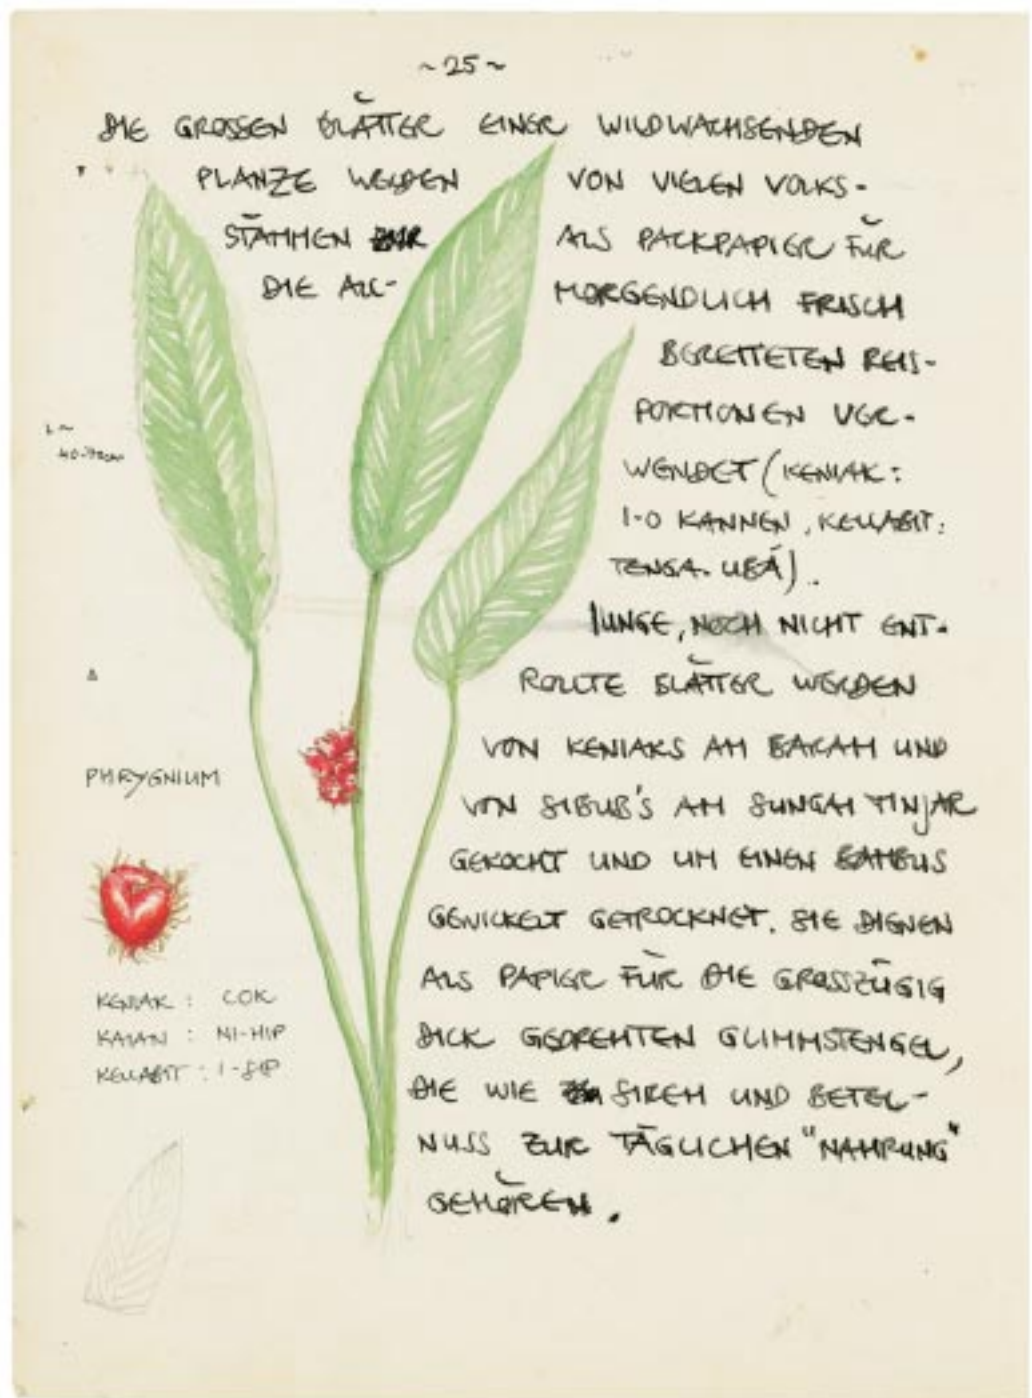 ~25~
DIE GROSSEN BLÄTTER EINER WILDWACHSENDEN
PLANZE WERDEN VON VIELEN VOLKS-
STÄMMEN ALS PACKPAPIER FÜR
DIE ALL- MORGENDLICH FRISCH
BEREITETEN REIS-
PORTIONEN VER-
WENDET (KENIAK:
I-O KANNEN, KELLABIT:
TENGA. UBÁ).
JUNGE, NOCH NICHT ENT-
ROLLTE BLÄTTER WERDEN
VON KENIAKS AM BARAM UND
VON SIBUB'S AM SUNGAI TINJAR
GEKOCHT UND UM EINEN BAMBUS
GEWICKELT GETROCKNET. SIE DIENEN
ALS PAPIER FÜR DIE GROSSZÜGIG
DICK GEDREHTEN GLIMMSTENGEL,
DIE WIE SIREH UND BETEL-
NUSS ZUR TÄGLICHEN "NAHRUNG"
GEHÖREN.
PHRYGNIUM
KENIAK : COK
KAIAN : NI-HIP
KELLABIT : I-SIP